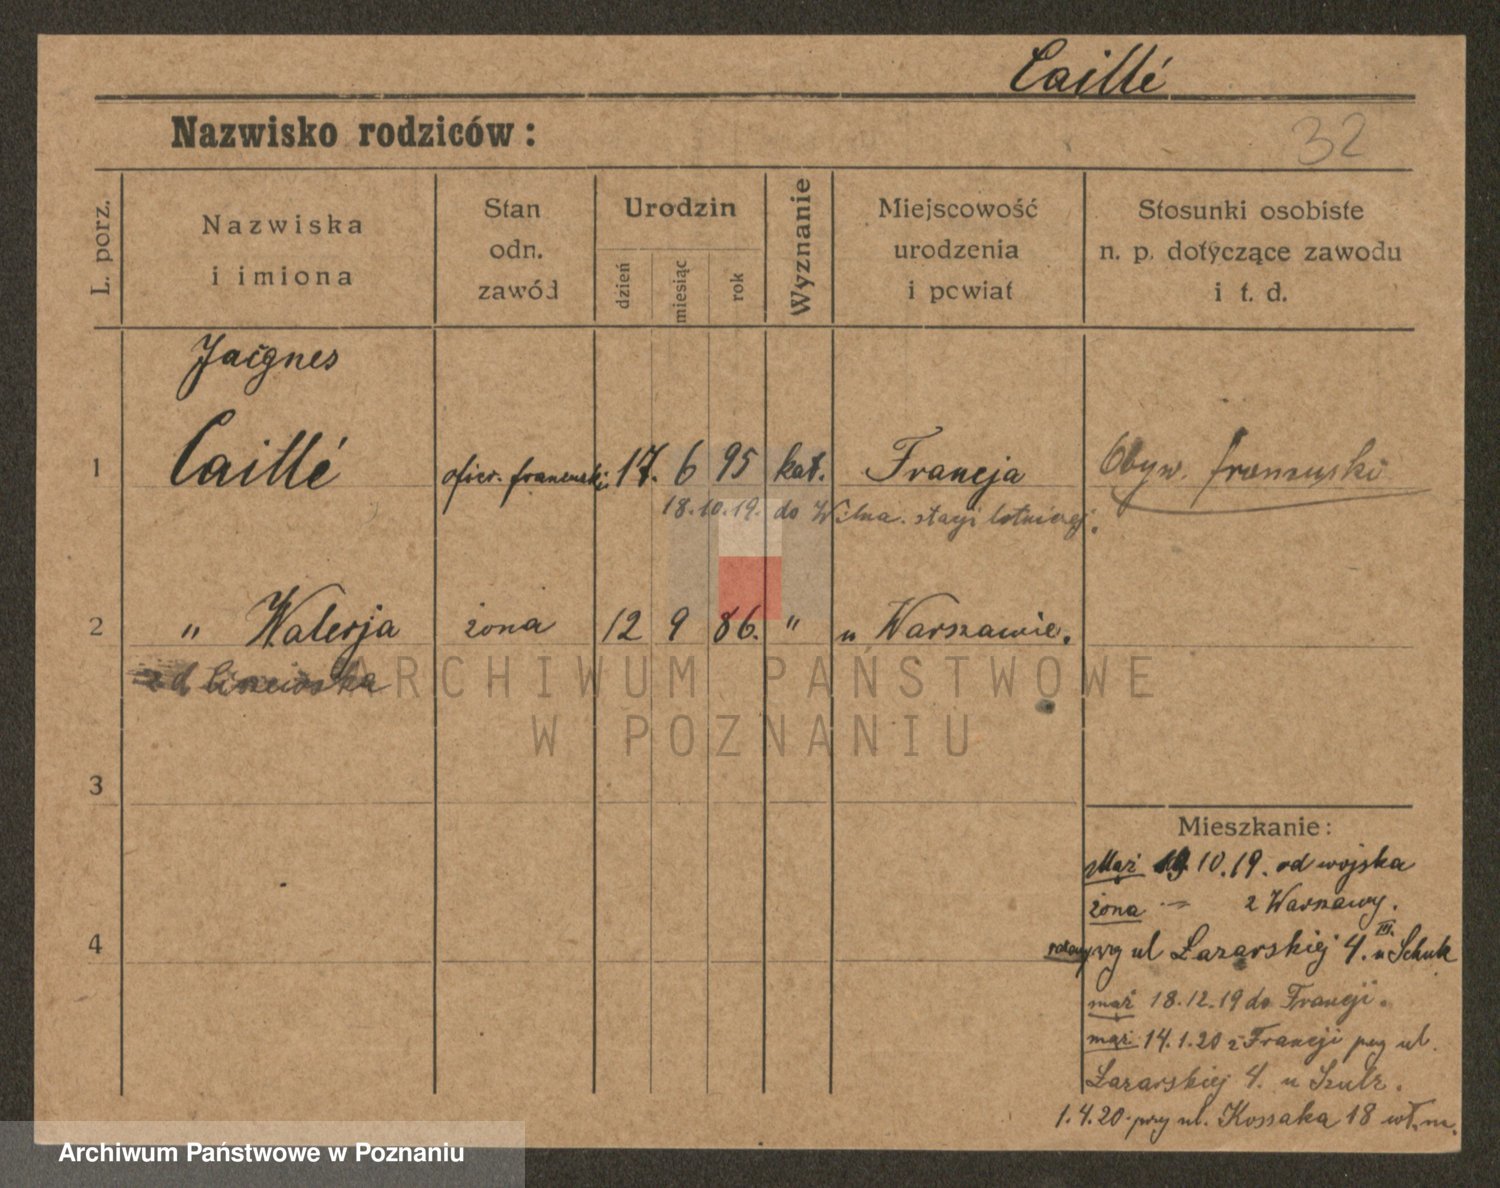 Caillé
Nazwisko rodziców:
32
L. porz.
Nazwiska
i imiona
Stan
odn.
zawód
Urodzin
dzień
miesiąc
rok
Wyznanie
Miejscowość
urodzenia
i powiat
Stosunki osobiste
n. p. dotyczące zawodu
i t. d.
Jacgnes
1 Caillé oficer. francuski. 17. 6 95 kat. Francja Obyw. francuski
18.10.19. do Wilna. stacji lotniczej.
2 " Walerja żona 12 9 86. " u Warszawie.
ARCHIWUM PAŃSTWOWE
W POZNANIU
3
4
Mieszkanie:
Mąż 10.19. od wojska
żona — z Warszawy.
przy ul Łazarskiej 4. III. u Schulz
mąż 18.12.19 do Francji.
mąż. 14.1.20 z Francji przy ul.
Łazarskiej 4. u Szulz.
1.4.20. przy ul. Kossaka 18 wł. m.
Archiwum Państwowe w Poznaniu